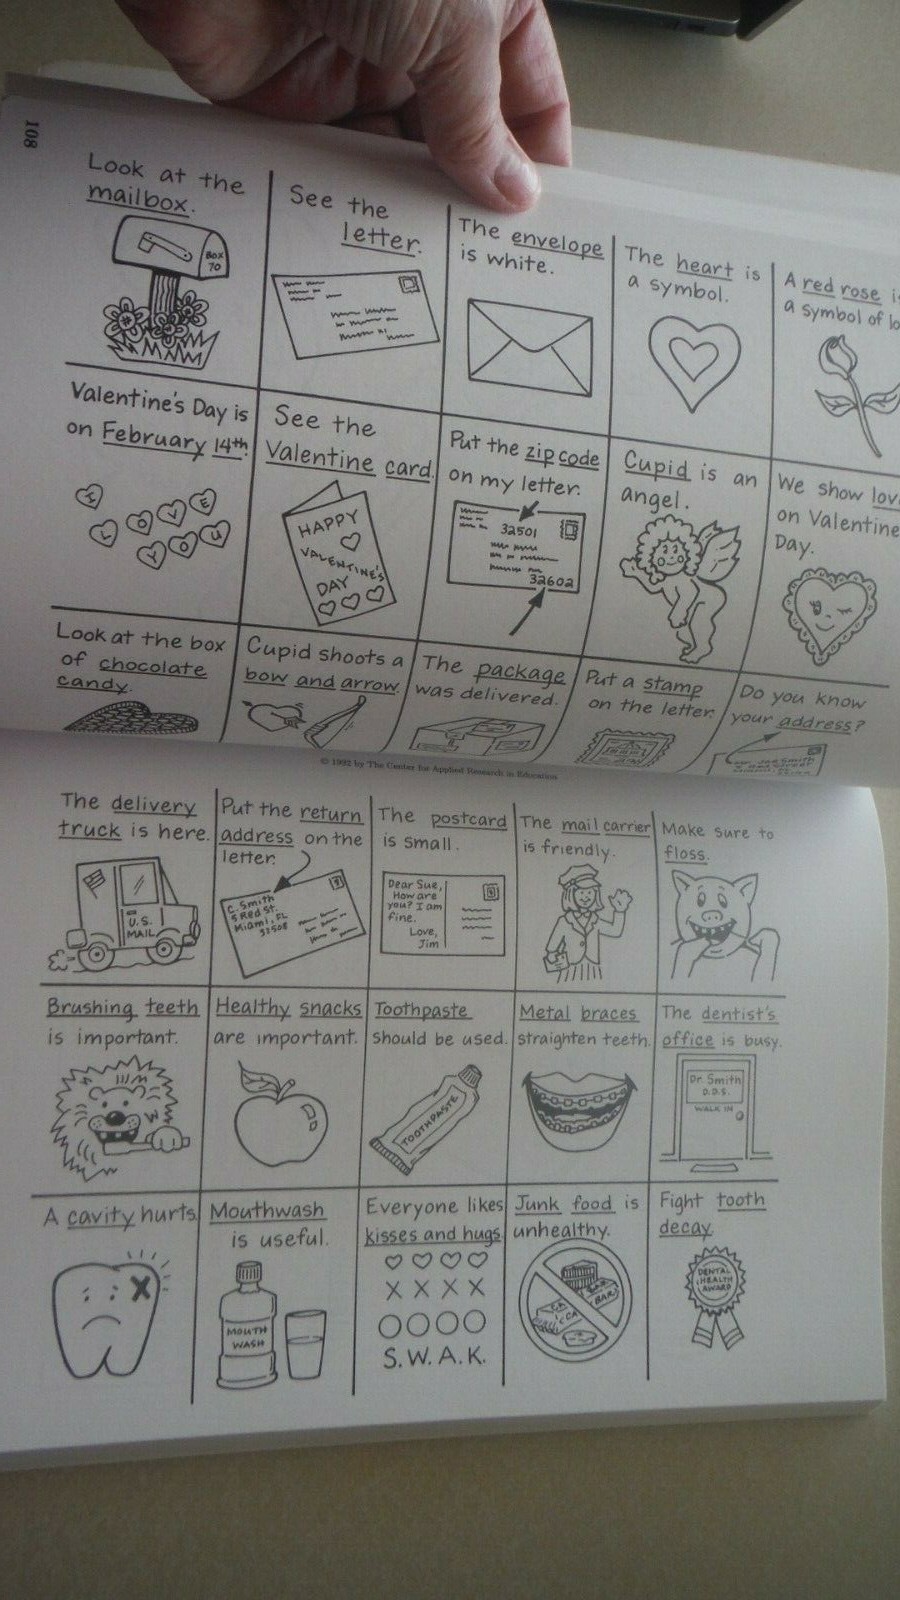 108
Look at the
mailbox.
BOX
70
See the
letter.
The envelope
is white.
The heart is
a symbol.
A red rose
a symbol of
Valentine's Day is
on February 14th.
I
LOVE
YOU
See the
Valentine card.
HAPPY
VALENTINE'S
DAY
Put the zip code
on my letter.
32501
32602
Cupid is an
angel.
We show
on Valentine
Day.
Look at the box
of chocolate
candy.
Cupid shoots a
bow and arrow.
The package
was delivered.
Put a stamp
on the letter.
Do you know
your address?
© 1992 by The Center for Applied Research in Education
The delivery
truck is here.
U.S.
MAIL
Put the return
address on the
letter.
C. Smith
5 Red St.
Miami, FL
The postcard
is small.
Dear Sue,
How are
you? I am
fine.
Love,
Jim
The mail carrier
is friendly.
Make sure to
floss.
Brushing teeth
is important.
Healthy snacks
are important.
Toothpaste
should be used.
TOOTHPASTE
Metal braces
straighten teeth.
The dentist's
office is busy.
Dr. Smith
D.D.S.
WALK IN
A cavity hurts.
Mouthwash
is useful.
MOUTH
WASH
Everyone likes
kisses and hugs.
X X X X
O O O O
S.W.A.K.
Junk food is
unhealthy.
BAR
Fight tooth
decay.
DENTAL
HEALTH
AWARD